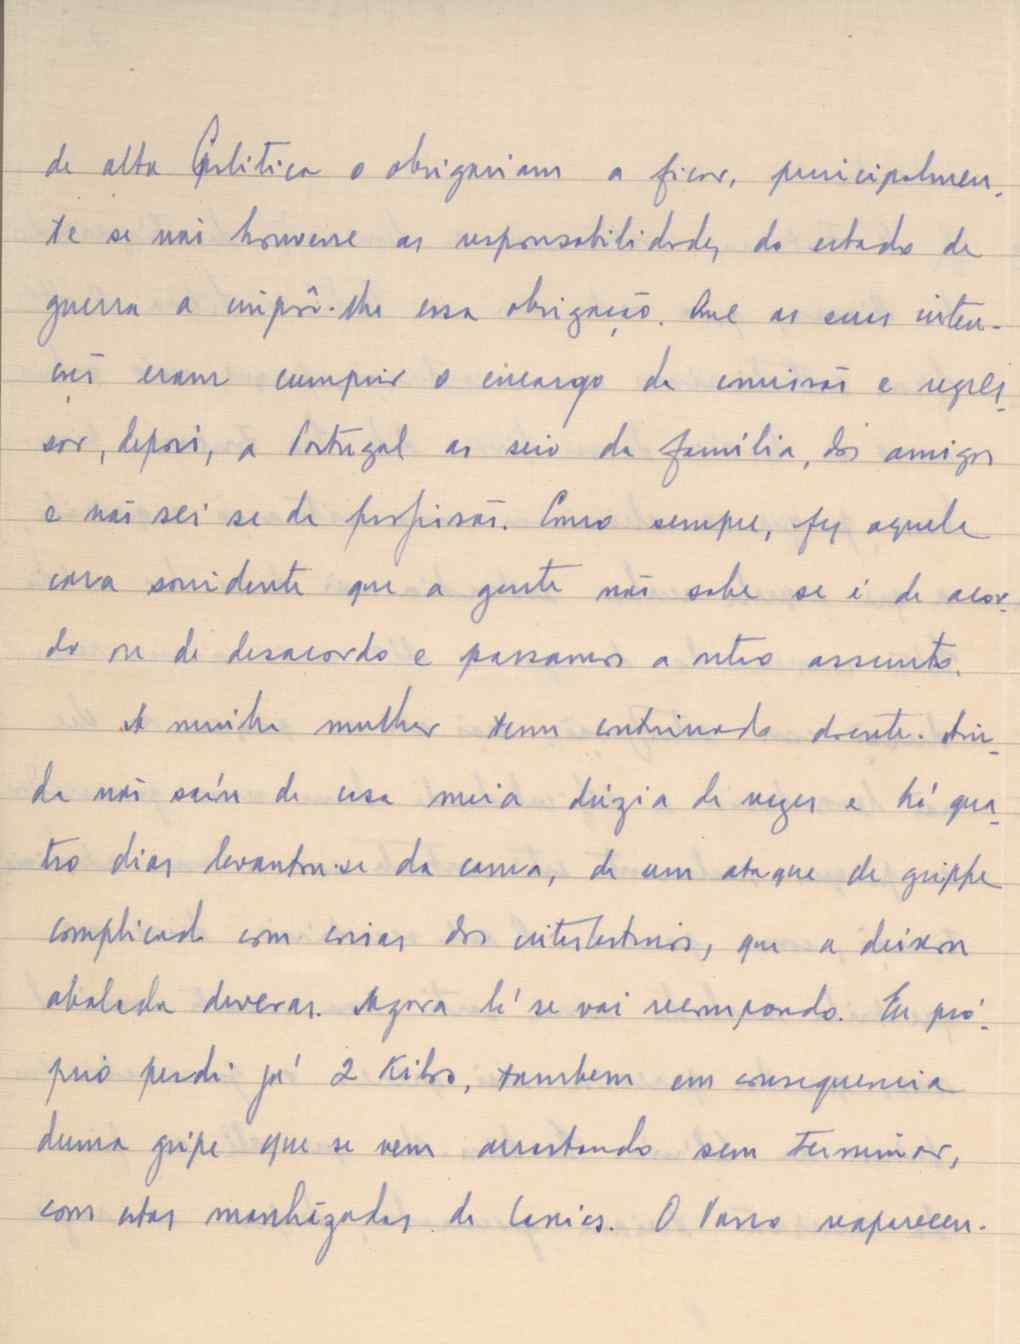 de alta Politica o obrigariam a ficar, principalmen-
te se não houvesse as responsabilidades do estado de
guerra a impôr-lhe essa obrigação. Que as suas inten-
ções eram cumprir o encargo da comissão e regres-
sar, depois, a Portugal ao seio da família, dos amigos
e não sei se da profissão. Como sempre, fez aquela
cara sorridente que a gente não sabe se é de acor-
do ou de desacordo e passamos a outro assunto.
A minha mulher tem continuado doente. Ain-
da não saíu de casa meia dúzia de vezes e há qua-
tro dias levantou-se da cama, de um ataque de grippe
complicada com coisas dos intestinos, que a deixou
abalada deveras. Agora lá se vai recompondo. Eu pró-
prio perdi já 2 Kilos, tambem em consequencia
duma gripe que se vem arrastando sem terminar,
com estas manhãzadas de O Vasco reapareceu.